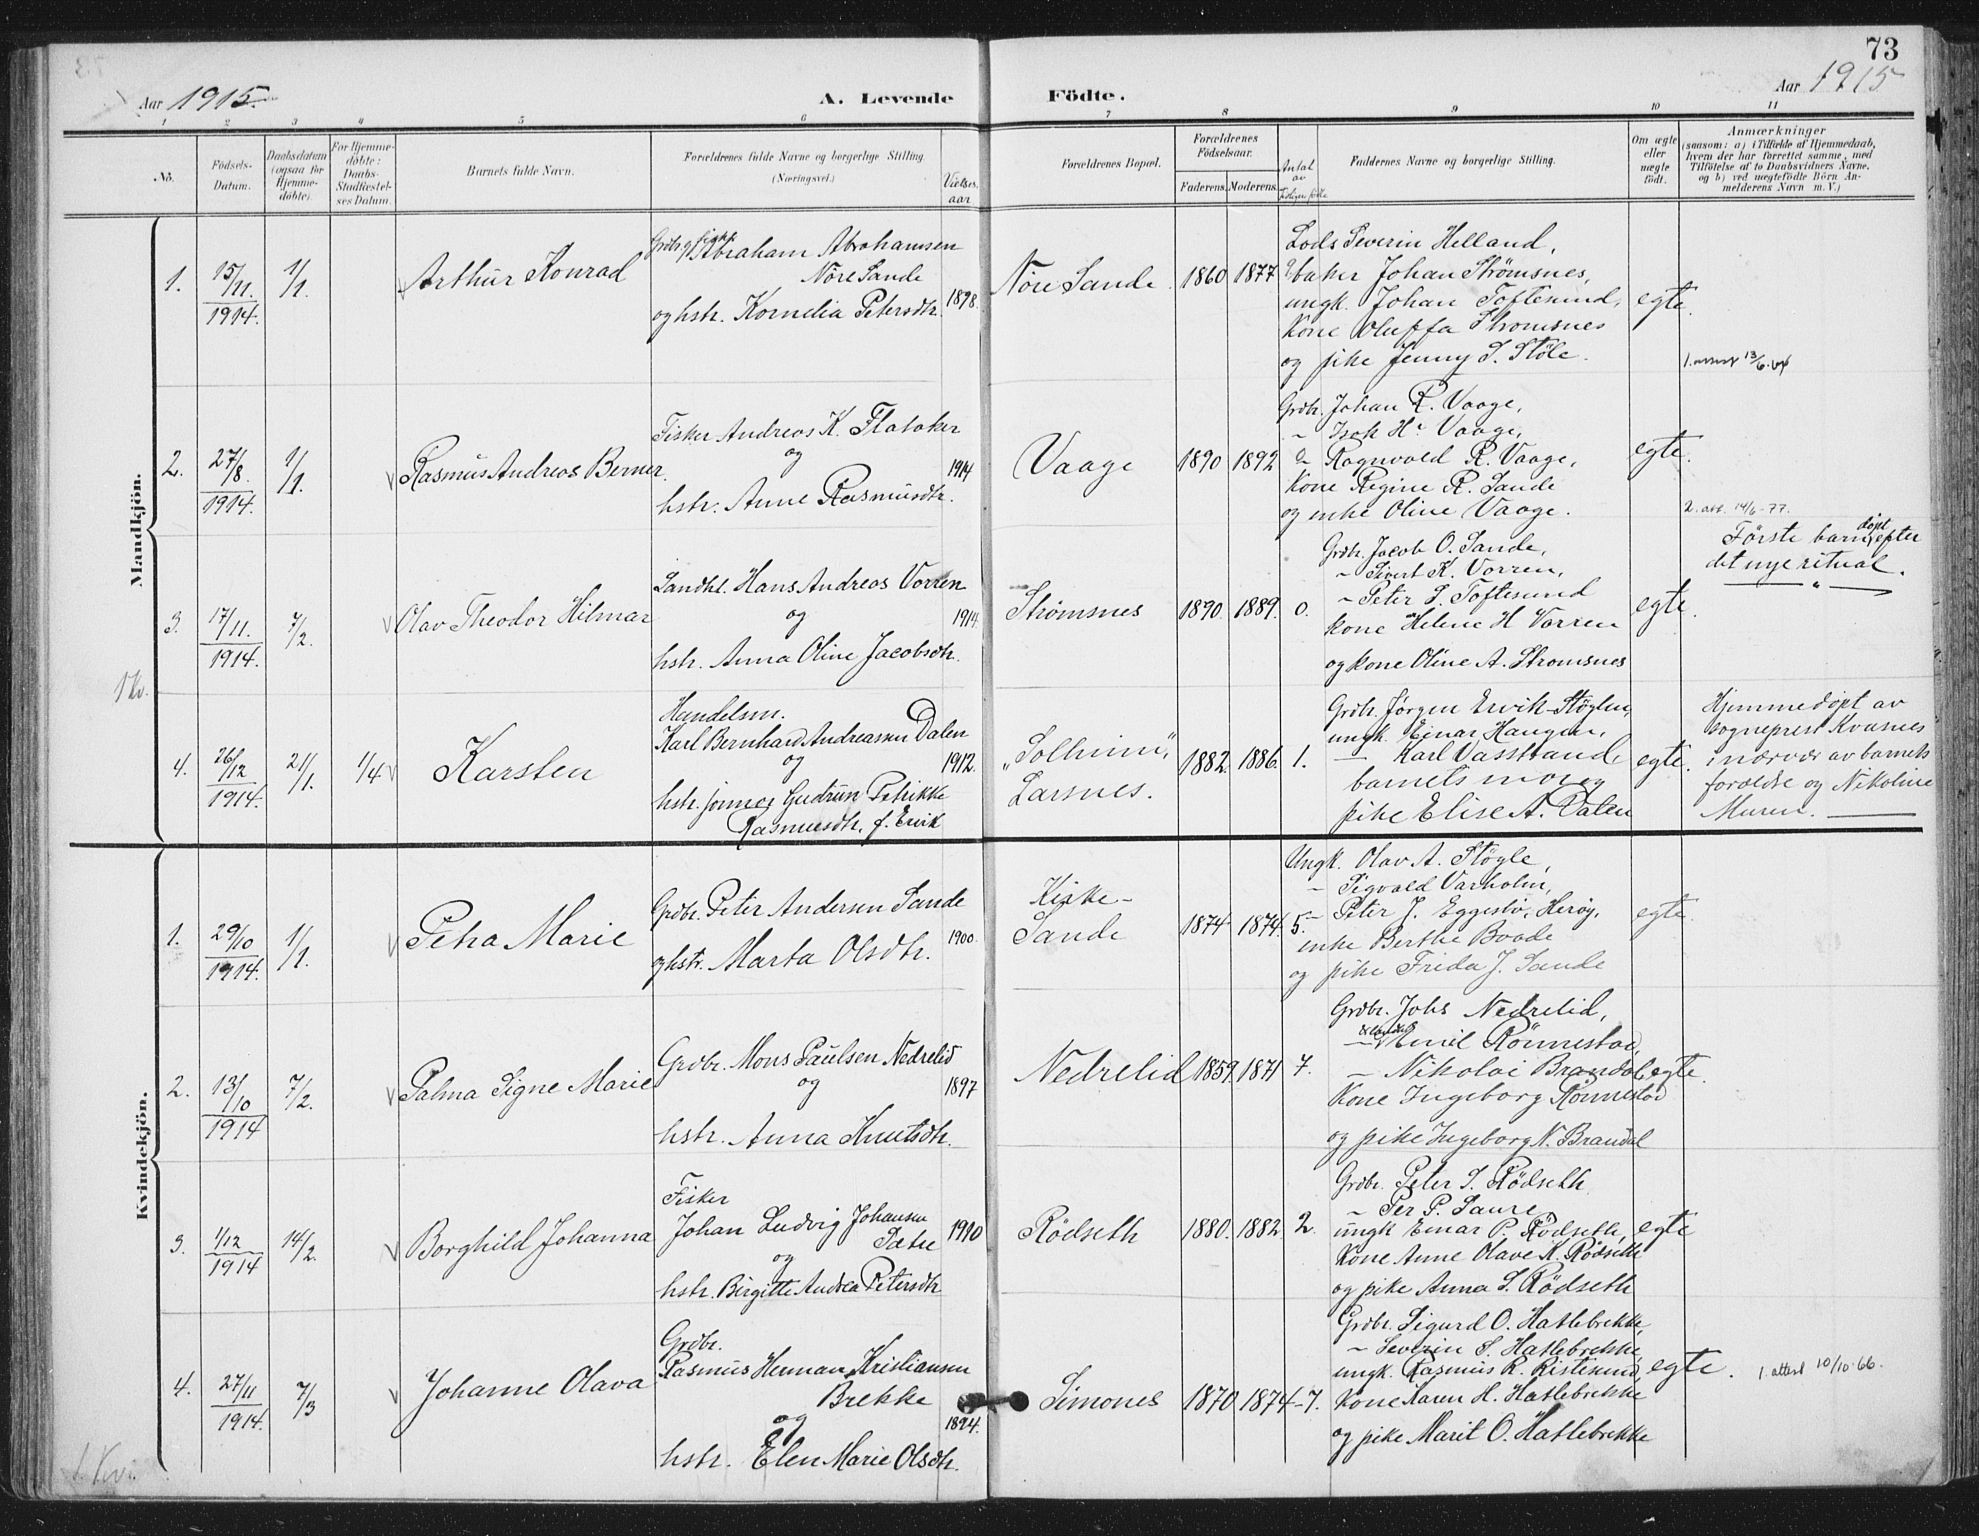 73
Aar 1915.
A. Levende
Födte.
Aar 1915
1 2 3 4 5 6 7 8 9 10 11
No.
Födsels-
Datum.
Daabsdatum
(ogsaa for
Hjemme-
döbte).
For Hjemme-
döbte:
Daabs-
Stadfæstel-
ses Datum.
Barnets fulde Navn.
Forældrenes fulde Navne og borgerlige Stilling.
(Næringsvei.)
Vielses-
aar
Forældrenes Bopæl.
Forældrenes
Födselsaar.
Faderens. Moderens.
Antal
av
tidligere fødte
Faddernes Navne og borgerlige Stilling.
Om ægte
eller
uægte
födt.
Anmærkninger
(saasom: a) i Tilfælde af Hjemmedaab,
hvem der har forrettet samme, med
Tilföielse af to Daabsvidners Navne,
og b) ved uægtefödte Börn An-
melderens Navn m. V.)
Mandkjön.
1.
15/11.
1914.
1/1.
Arthur Konrad
Grdbr. og fisker Abraham Abrahamsen
Nøre Sande
og hstr. Kornelia Petersdtr.
1898.
Nøre Sande.
1860 1877
Lods Severin Helland,
baker Johan Strømsnes,
ungk. Johan Toftesund,
kone Oluffa Stromsnes
og pike Jenny S. Støle.
egte.
1. attest 13/6.
2.
27/8.
1914.
1/1.
Rasmus Andreas Berner.
Fisker Andreas K. Flatøker
og
hstr. Anne Rasmusdtr.
1914
Vaage
1890 1892
Grdbr. Johan R. Vaage,
~ Isak H. Vaage,
~ Ragnvald R. Vaage,
Kone Regine R. Sande
og enke Oline Vaage.
egte.
2. att. 14/6-77.
3.
17/11.
1914.
7/2.
Olav Theodor Hilmar
Sandhl. Hans Andreas Vorren
og
hstr. Anna Oline Jacobsdtr.
1914.
Strømsnes
1890. 1889. 0.
Grdbr. Jacob O. Sande,
~ Sivert K. Vorren,
~ Peter S. Toftesund
kone Helene H Vorren
og kone Oline A. Stromsnes
egte.
Første barn døpt efter
det nye ritual.
1 Kv.
4.
26/12
1914.
21/1.
1/4
Karsten
Handelsm.
Karl Bernhard Andreassen Dalen
og
hstr. Gudrun Petrikke
Rasmusdtr. f. Ervik
1912.
„Solheim",
Larsnes.
1882. 1886. 1.
Grdbr. Jørgen Ervik-Støylen,
ungk. Einar Haugen,
— Karl Vasstrand,
barnets mor og
pike Elise A. Dalen
egte.
Hjemmedøpt av
sogneprest Kvasnes
i nærvær av barnets
forældre og Nikoline
Muren.
Kvindekjön.
1.
29/10
1914.
1/1.
Petra Marie
Grdbr. Peter Andersen Sande
og hstr. Marta Olsdtr.
1900.
Kirke-
Sande
1874 1874. 5.
Ungk. Olav A. Støyle,
~ Sigvald Varholm,
~ Peter J. Eggesbø, Herøy,
enke Berthe Baade
og pike Frida J. Sande
egte.
2.
13/10
1914
7/2.
Palma Signe Marie
Grdbr. Mons Paulsen Nedrelid
og
hstr. Anna Knutsdtr.
1897
Nedrelid
1859. 1871 7.
Grdbr. Johs Nedrelid,
— Emil Rønnestad,
— Nikolai Brandal,
Kone Ingeborg Rønnestad
og pike Ingeborg N. Brandal
egte.
3.
1/12
1914
14/2.
Borghild Johanna
Fisker
Johan Ludvig Johansen
Sætre
og
hstr. Birgitte Andrea Petersdtr
1910
Rödseth
1880. 1882 2.
Grdbr. Peter S. Rödseth
~ Per P. Saure
ungk Einar P. Rödseth,
Kone Anne Olave K. Rödseth
og pike Anna S. Rödseth
egte
4.
27/11
1914.
7/3
Johanne Olava
Grdbr.
Rasmus Herman Kristiansen
Brekke
og
hstr. Elen Marie Olsdtr.
1894.
Simones
1870 1874-7.
Grdbr. Sigurd O. Hatlebrekke,
~ Severin S. Hatlebrekke,
ungk. Rasmus R. Ristesund,
Kone Karen H. Hatlebrekke
og pike Marit O. Hatlebrekke
egte.
1. attest 10/10-66.
1 Kv.